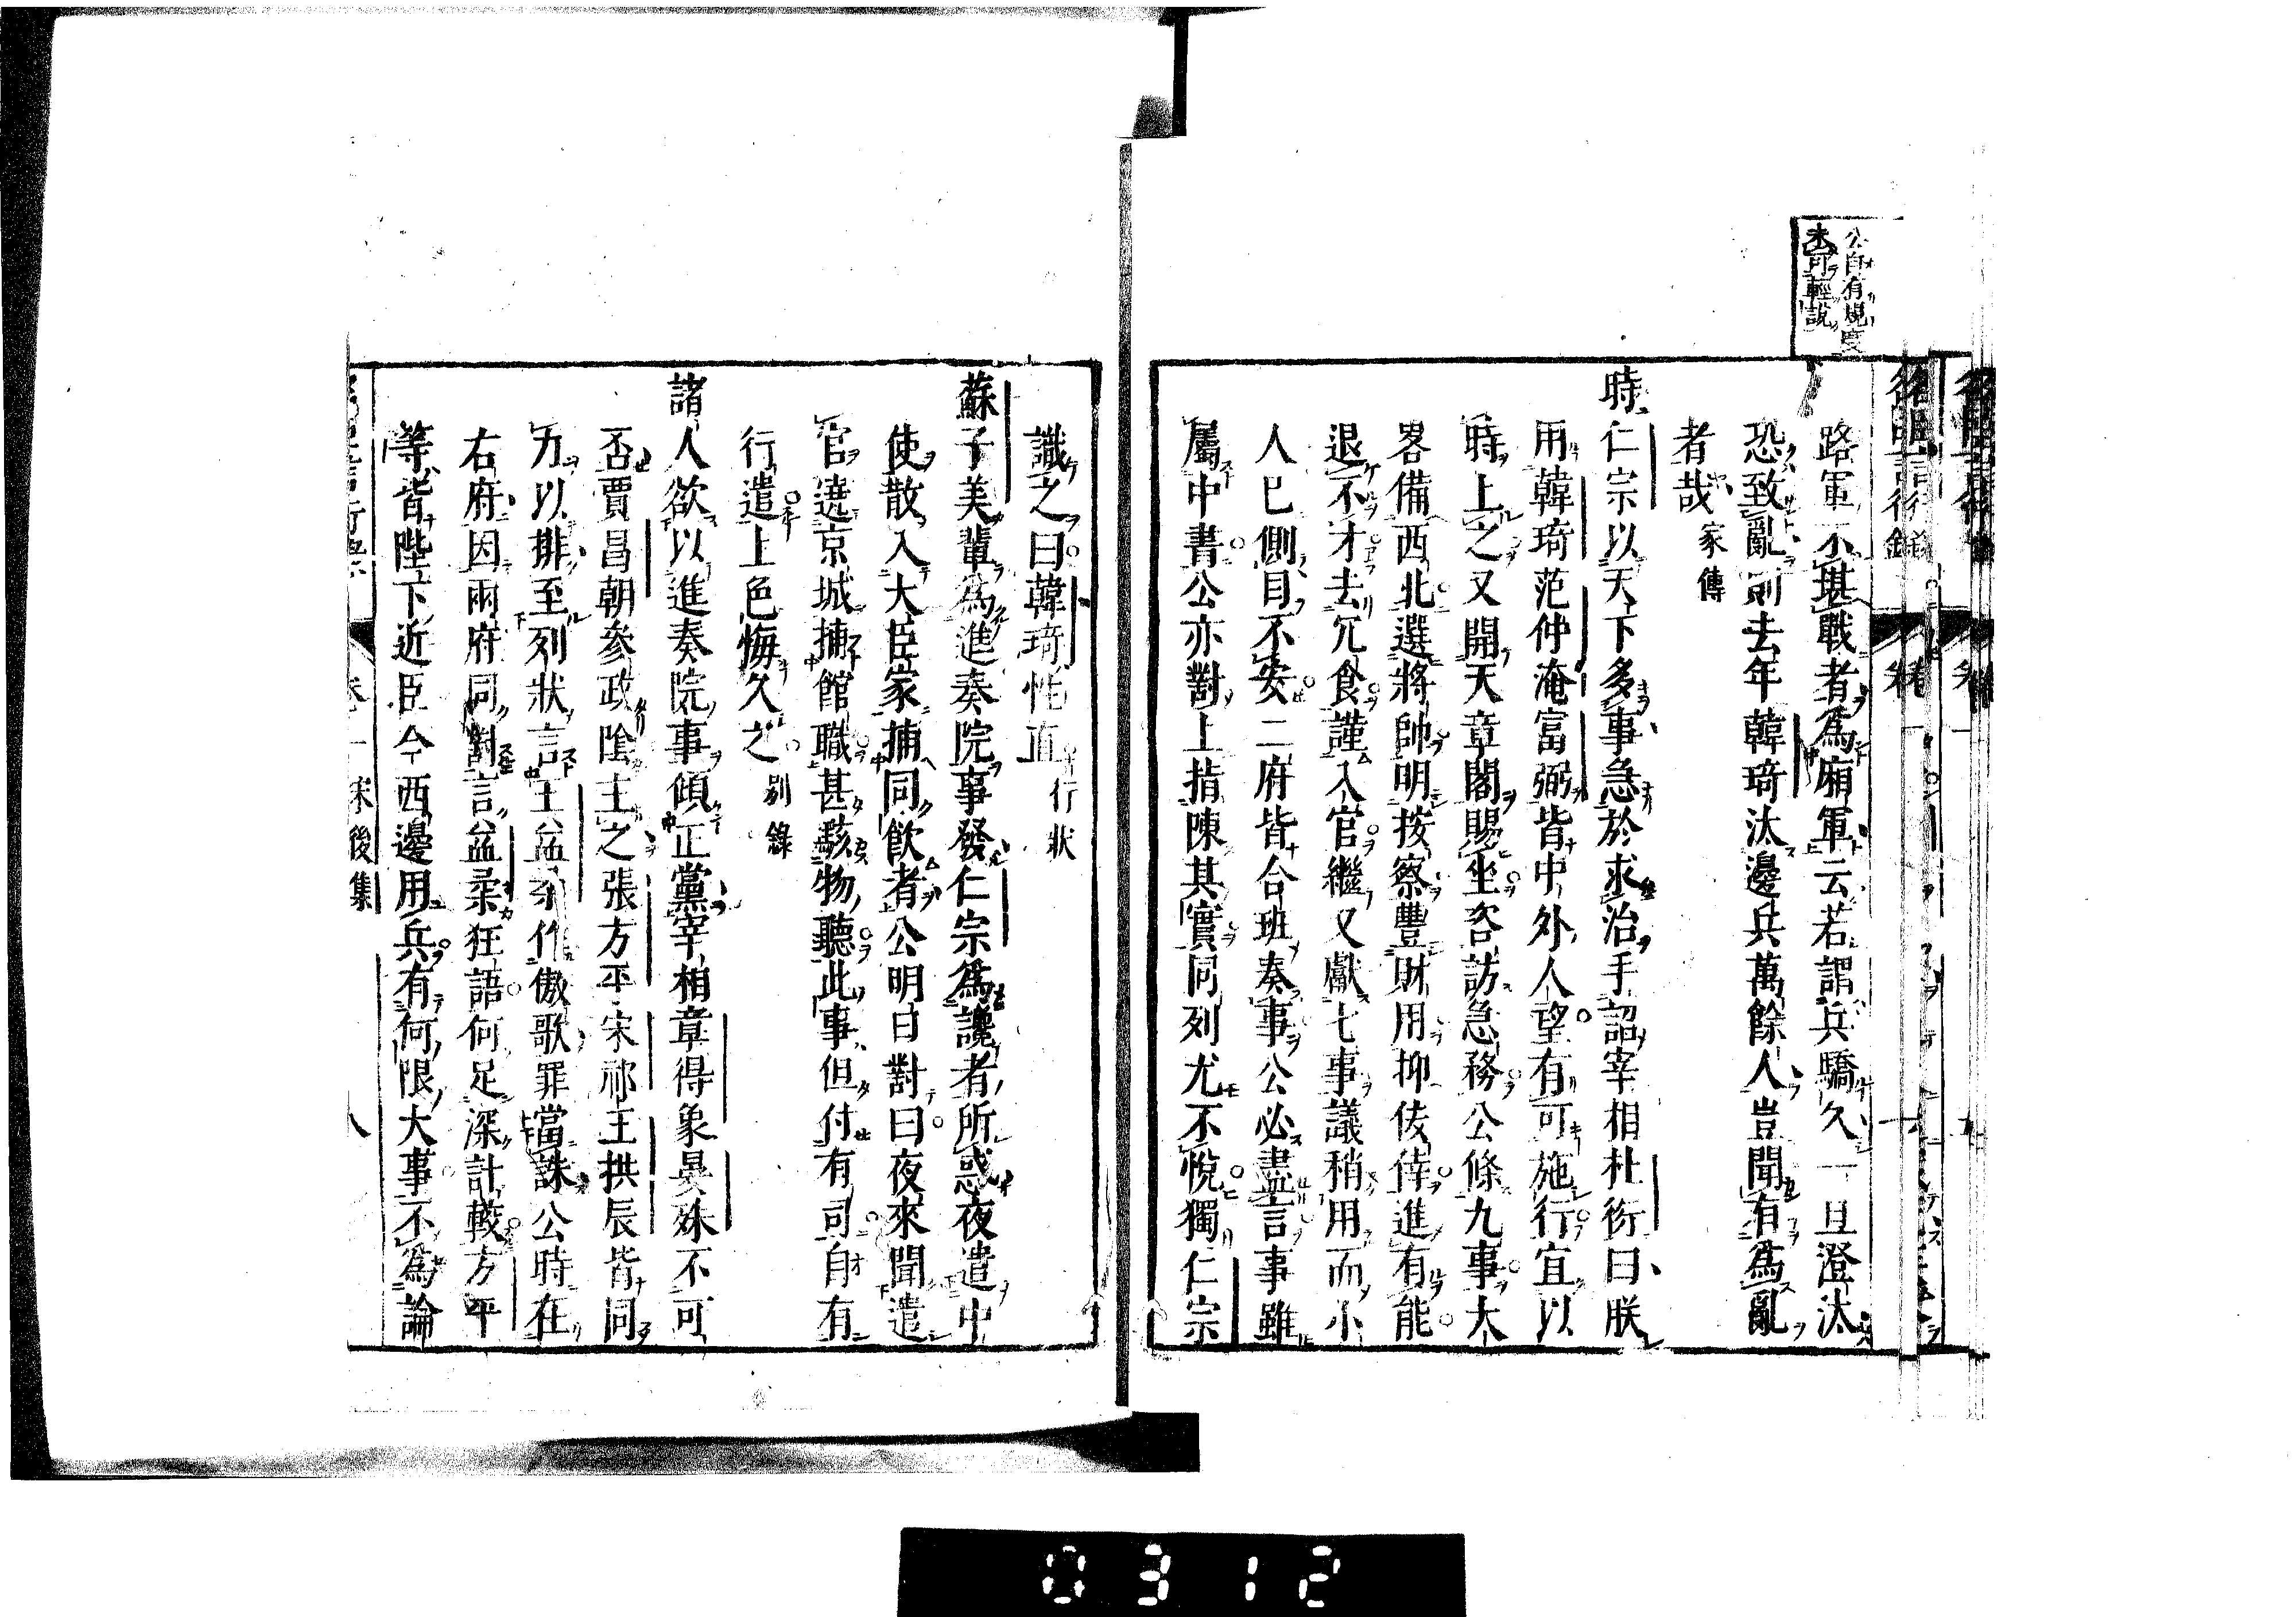 公自有規度
未可輕說
路軍不堪戰者爲廂軍云若謂兵驕久一旦澄汰
恐致亂則去年韓琦汰邊兵萬餘人豈聞有爲亂
者哉 家傳
時仁宗以天下多事急於求治手詔宰相杜衍曰朕
用韓琦范仲淹富弼皆中外人望有可施行宜以
時上之又開天章閣賜坐咨訪急務公條九事大
畧備西北選將帥明按察豐財用抑僥倖進有能
退不才去冗食謹入官繼又獻七事議稍用而小
人已側目不安二府皆合班奏事公必盡言事雖
屬中書公亦對上指陳其實同列尤不悅獨仁宗
識之曰韓琦性直 行狀
蘇子美輩爲進奏院事發仁宗爲讒者所惑夜遣中
使散入大臣家捕同飮者公明日對曰夜來聞遣
官遶京城捕館職甚駭物聽此事但付有司自有
行遣上色悔久之 別錄
諸人欲以進奏院事傾正黨宰相章得象晏殊不可
否賈昌朝參政陰主之張方平宋祁王拱辰皆同
力以排至列狀言王益柔作傲歌罪當誅公時在
右府因兩府同對言益柔狂語何足深計較方平
等皆陛下近臣今西邊用兵有何限大事不爲論
卷一 宋後集 八
0312